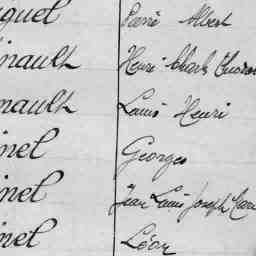 quel Pierre Albert
inault Henri Charles
nault Louis Henri
inel Georges
inel Jean Louis Joseph
inel Léon